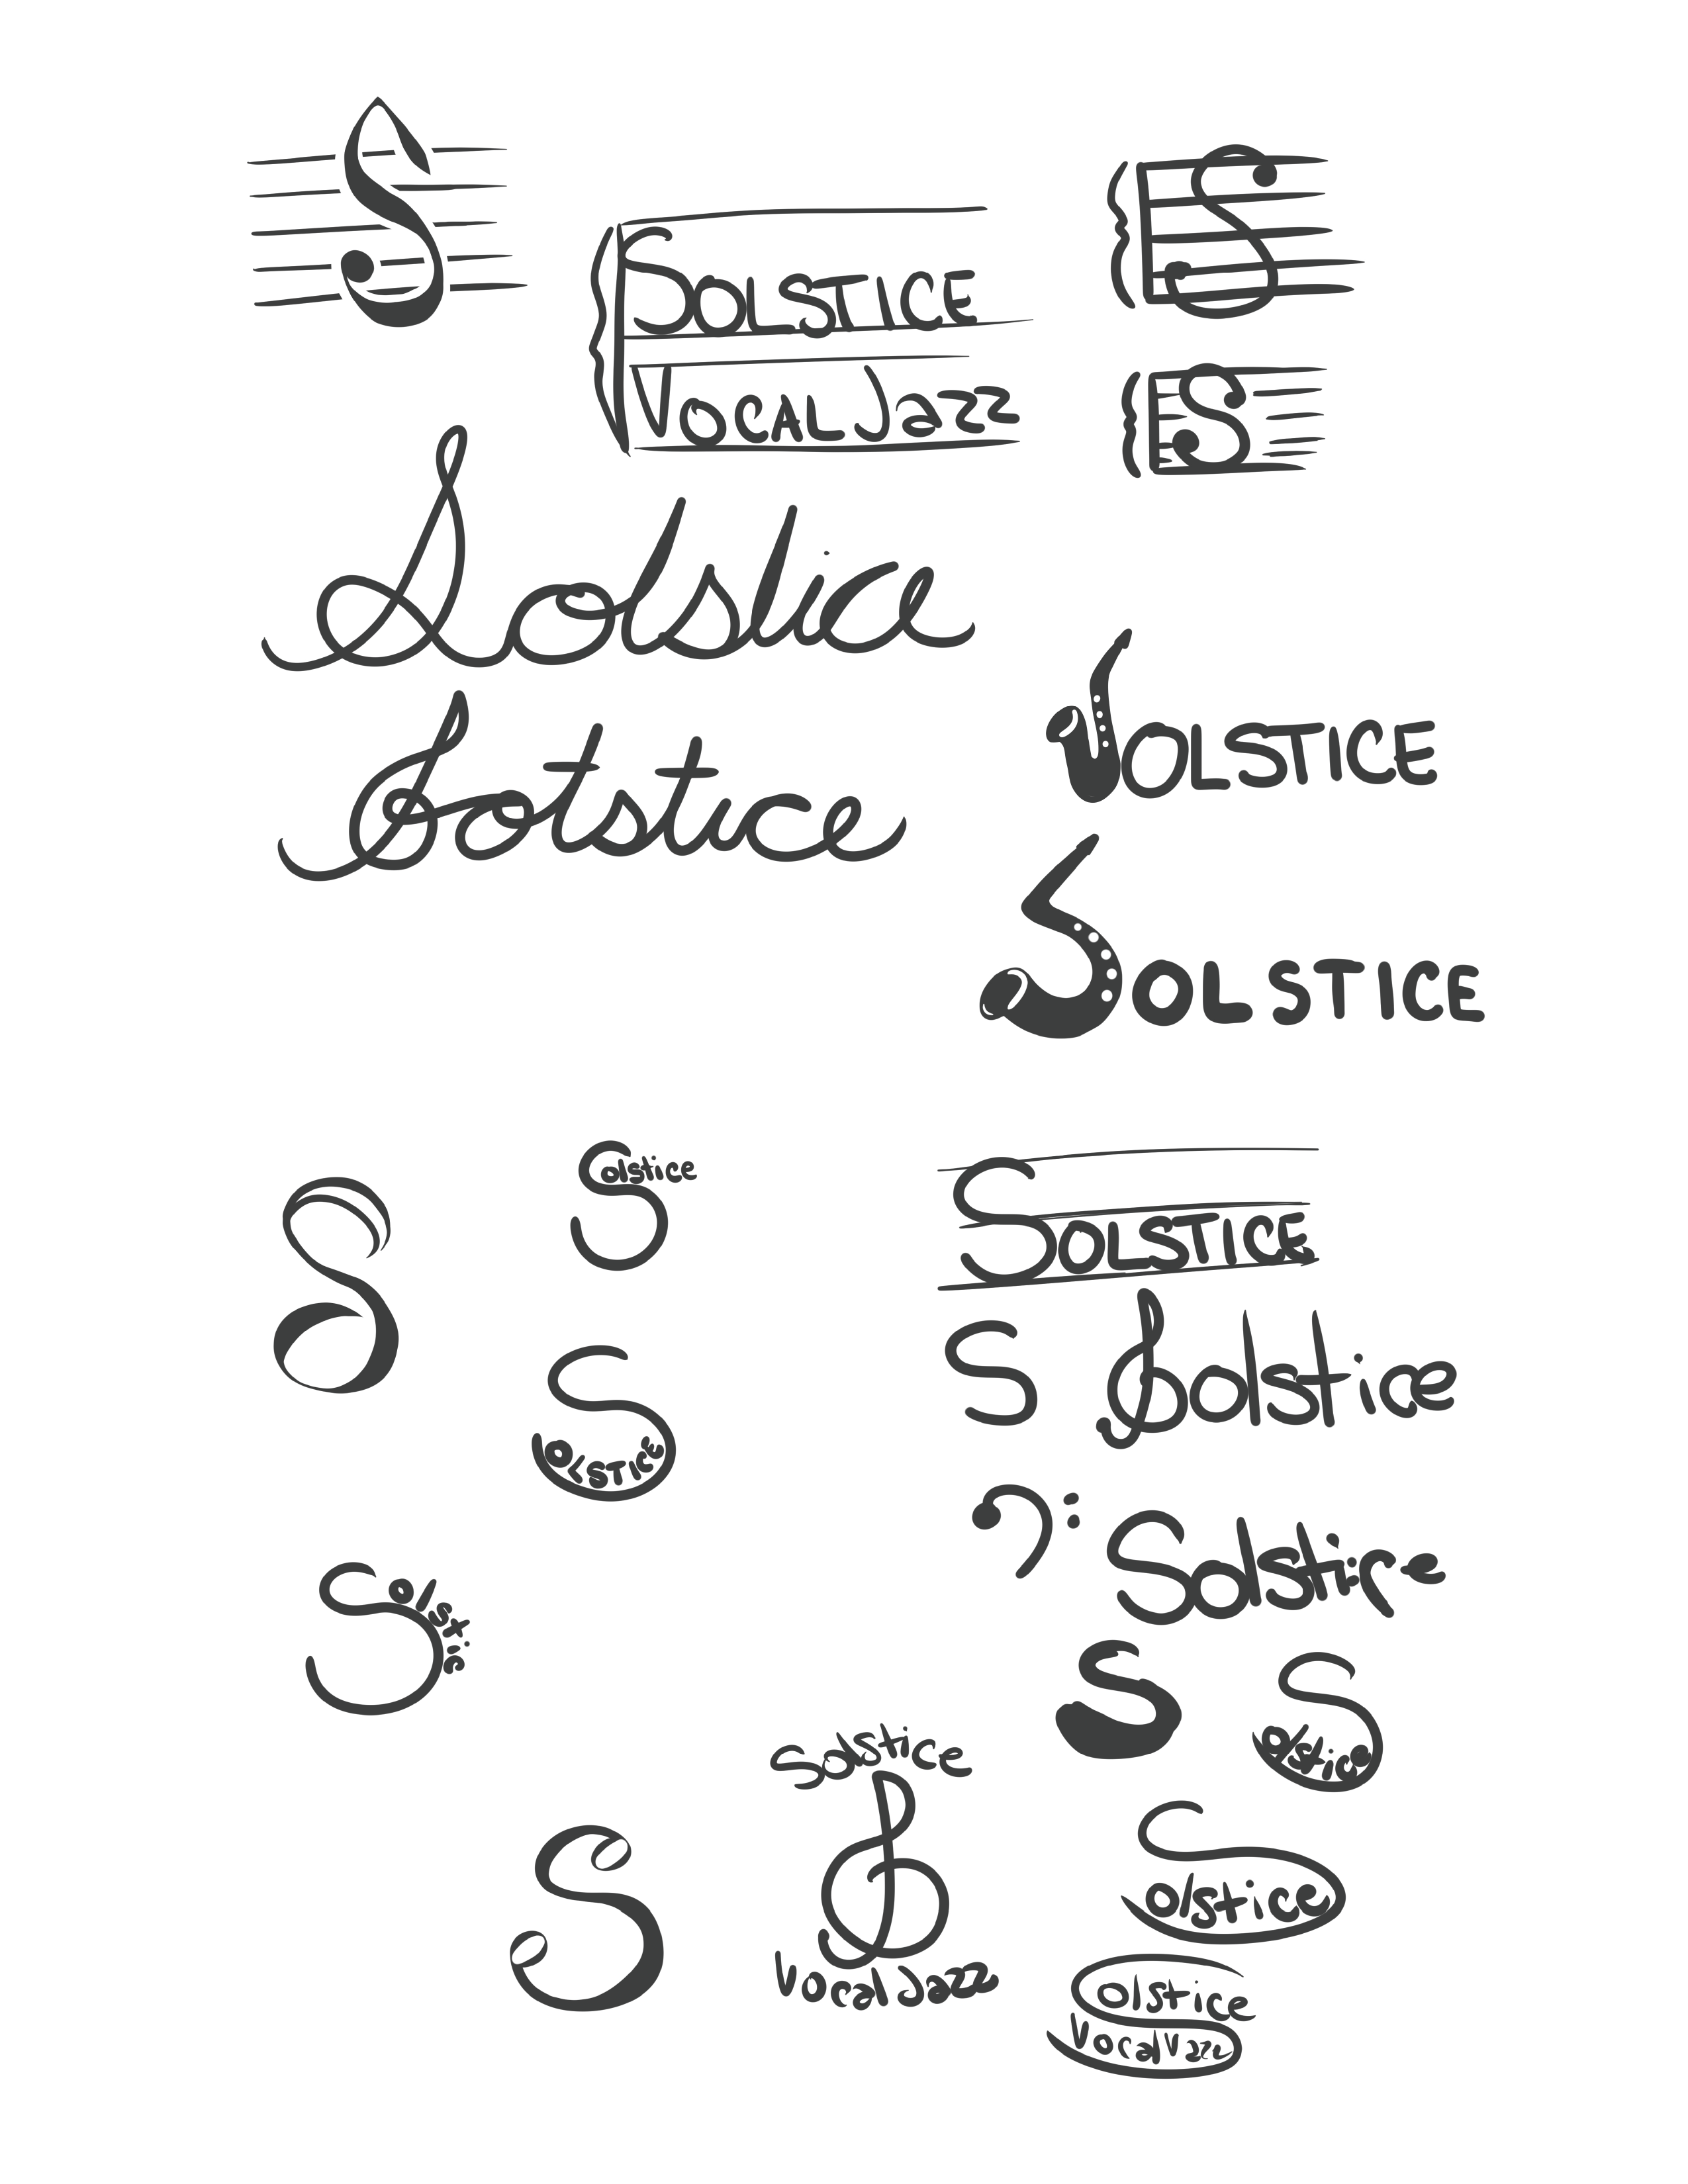 S
SOLSTICE
VOCAL JAZZ
S
S
Solstice
Sotstice
SOLSTICE
SOLSTICE
S
Solstice
SOLSTICE
S
Solstice
SOLSTICE
Solstice
S
Solstice
Solstice
Solstice
Vocal Jazz
S
Solstice
Solstice
Vocal Jazz